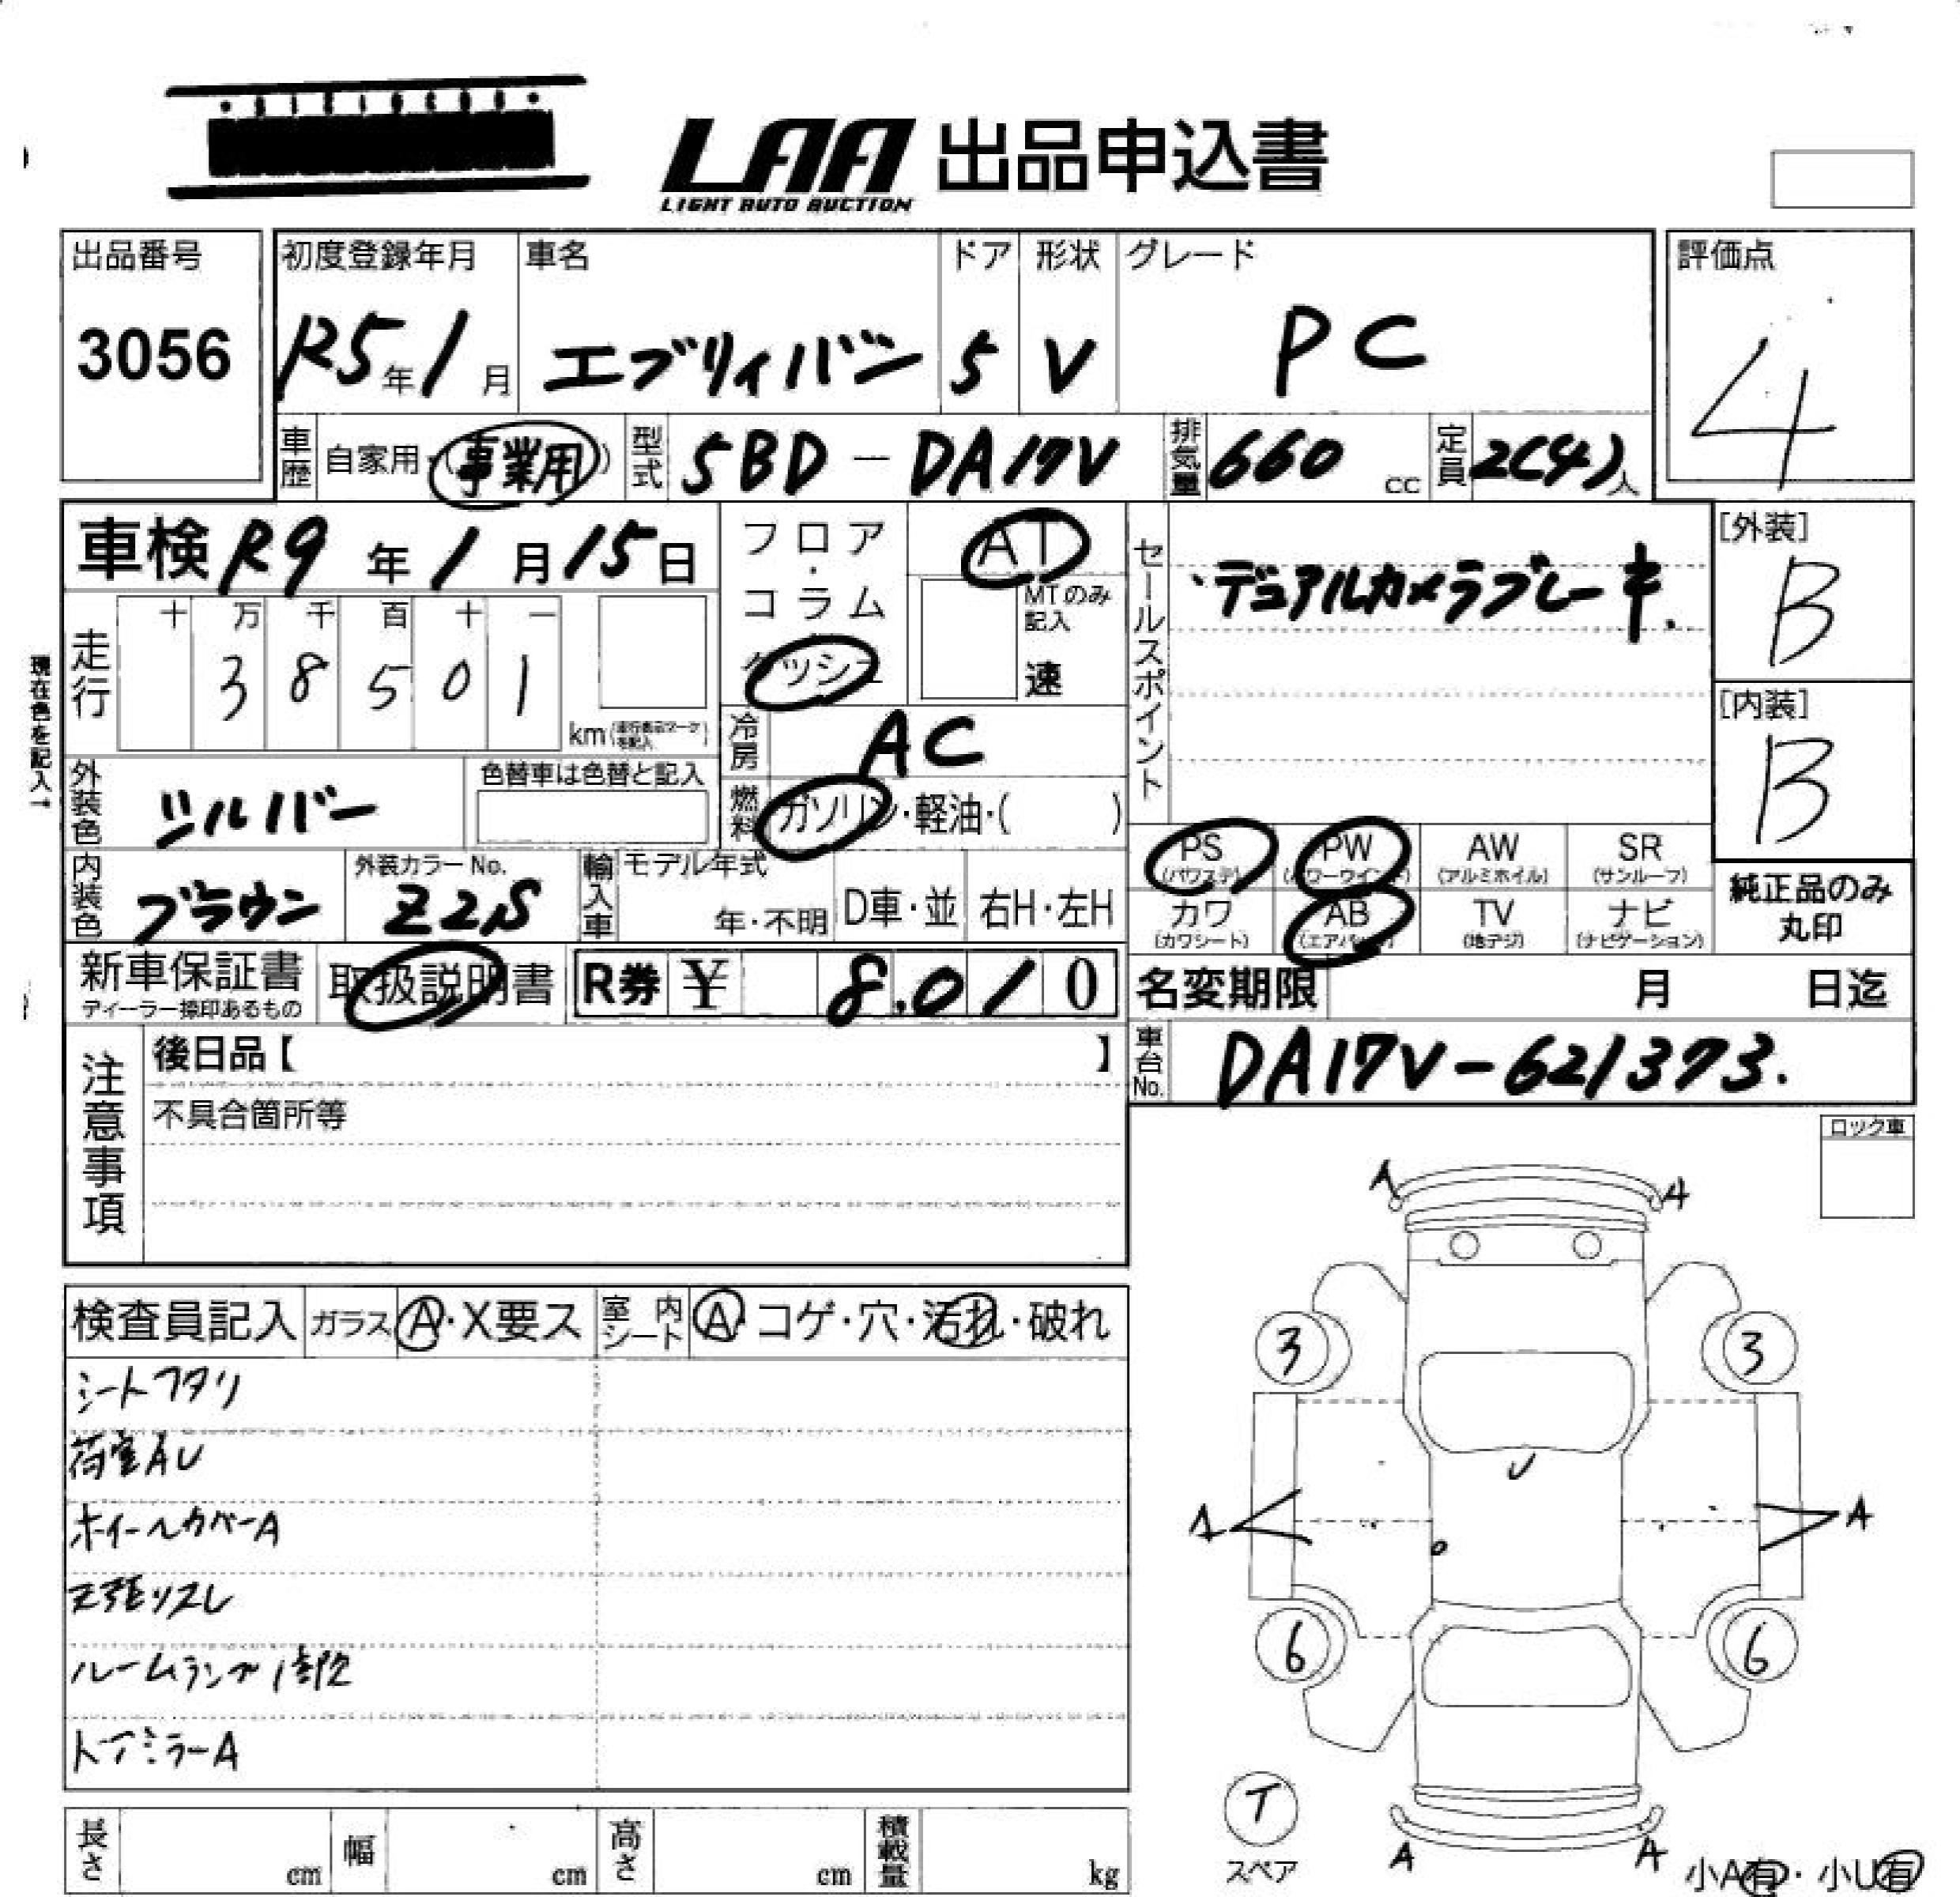 LAA 出品申込書
LIGHT AUTO AUCTION
出品番号 初度登録年月 車名 ドア 形状 グレード 評価点
3056 R5年1月 エブリィバン 5 V PC 4
車歴 自家用・(事業用) 型式 5BD-DA17V 排気量 660 cc 定員 2(4)人
車検 R9年1月15日
フロア・コラム ダッシュ
AT
MTのみ記入
速
セールスポイント
・デュアルカメラブレーキ.
[外装]
B
[内装]
B
現在色を記入→
走行 十 万 千 百 十 一
3 8 5 0 1
km(走行表示マークを記入)
冷房 AC
外装色 シルバー 色替車は色替と記入
燃料 ガソリン・軽油・( )
内装色 ブラウン 外装カラーNo. Z2S
輸入車 モデル年式 年・不明 D車・並 右H・左H
PS (パワステ) PW (パワーウインド) AW (アルミホイル) SR (サンルーフ)
カワ (カワシート) AB (エアバック) TV (地デジ) ナビ (ナビゲーション)
純正品のみ
丸印
新車保証書 取扱説明書 R券 ¥ 8,010
ディーラー捺印あるもの
名変期限 月 日迄
車台No. DA17V-621373.
注意事項
後日品【 】
不具合箇所等
ロック車
検査員記入 ガラス A・X要ス 室内シート A コゲ・穴・汚れ・破れ
シートフタリ
荷室AU
ホイールカバーA
ルームランプ
ドアミラーA
A A
3 3
U
A A
6 6
T
スペア
A A
小A有・小U有
長さ cm 幅 cm 高さ cm 積載量 kg